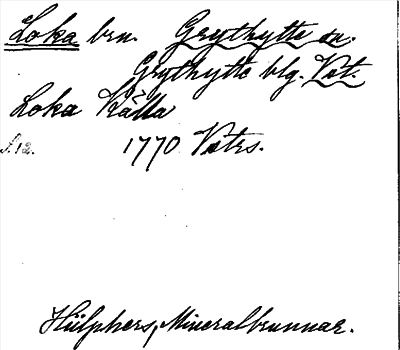 Loka brn. Grythytte sn.
Grythytte blg. Vst.
Loka Källa
S. 12. 1770 Vstrs.
Hülphers, Mineralbrunnar.